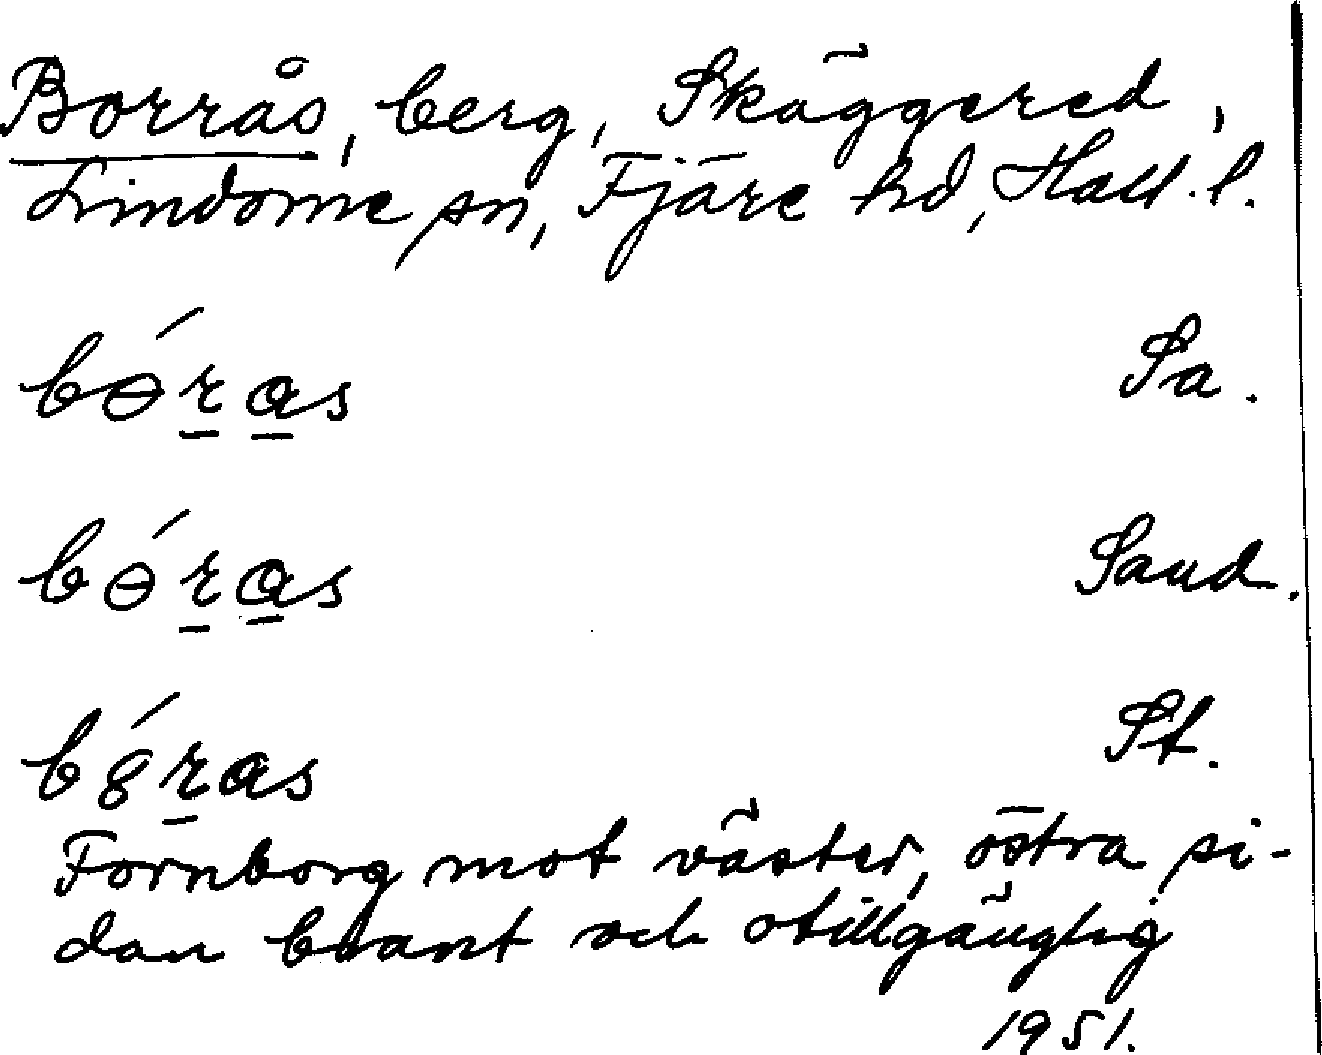 Borrås, berg, Skäggered,
Lindome sn, Fjäre hd, Hall. l.
bɵ́ras Sa.
bɵ́ras Sand.
b8́ras St.
Fornborg mot väster, östra si-
dan brant och otillgänglig
1951.